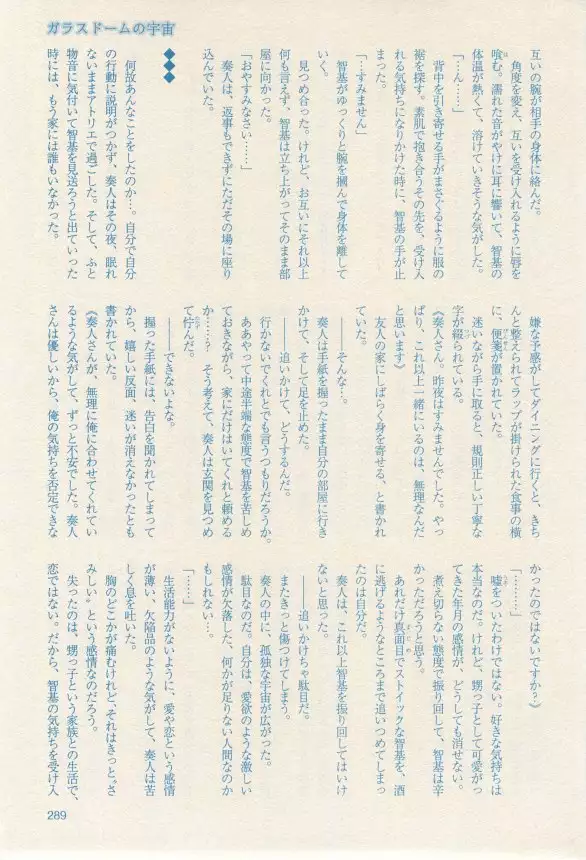 ガラスドームの宇宙
互いの腕が相手の身体に絡んだ。
角度を変え、互いを受け入れるように唇を
喰む。濡れた音がやけに耳に響いて、智基の
体温が熱くて、溶けていきそうな気がした。
「…ん……」
背中を引き寄せる手がまさぐるように服の
裾を探す。素肌で抱き合うその先を、受け入
れる気持ちになりかけた時に、智基の手が止
まった。
「…すみません」
智基がゆっくりと腕を摑んで身体を離して
いく。
見つめ合った。けれど、お互いにそれ以上
何も言えず、智基は立ち上がってそのまま部
屋に向かった。
「おやすみなさい……」
奏人は、返事もできずにただその場に座り
込んでいた。
◆◆◆
何故あんなことをしたのか…。自分で自分
の行動に説明がつかず、奏人はその夜、眠れ
ないままアトリエで過ごした。そして、ふと
物音に気付いて智基を見送ろうと出ていった
時には、もう家には誰もいなかった。
嫌な予感がしてダイニングに行くと、きち
んと整えられてラップが掛けられた食事の横
に、便箋が置かれていた。
迷いながら手に取ると、規則正しい丁寧な
字が綴られている。
《奏人さん。昨夜はすみませんでした。やっ
ぱり、これ以上一緒にいるのは、無理なんだ
と思います》
友人の家にしばらく身を寄せる、と書かれ
ていた。
――そんな…。
奏人は手紙を握ったまま自分の部屋に行き
かけて、そして足を止めた。
――追いかけて、どうするんだ。
行かないでくれとでも言うつもりだろうか。
ああやって中途半端な態度で智基を苦しめ
ておきながら、家にだけはいてくれと頼める
か……？　そう考えて、奏人は玄関を見つめ
て佇んだ。
――できないよな。
握った手紙には、告白を聞かれてしまって
から、嬉しい反面、迷いが消えなかったとも
書かれていた。
《奏人さんが、無理に俺に合わせてくれてい
るような気がして、ずっと不安でした。奏人
さんは優しいから、俺の気持ちを否定できな
かったのではないですか？》
「………」
嘘をついたわけではない。好きな気持ちは
本当なのだ。けれど、甥っ子として可愛がっ
てきた年月の感情が、どうしても消せない。
煮え切らない態度で振り回して、智基は辛
かっただろうと思う。
あれだけ真面目でストイックな智基を、酒
に逃げるようなところまで追いつめてしまっ
たのは自分だ。
奏人は、これ以上智基を振り回してはいけ
ないと思った。
――追いかけちゃ駄目だ。
またきっと傷つけてしまう。
奏人の中に、孤独な宇宙が広がった。
駄目なのだ。自分は、愛欲のような激しい
感情が欠落した、何かが足りない人間なのか
もしれない…。
生活能力がないように、愛や恋という感情
が薄い、欠陥品のような気がして、奏人は苦
しく息を吐いた。
「……」
胸のどこかが痛むけれど、それはきっと〝さ
みしい〟という感情なのだろう。
失ったのは、甥っ子という家族との生活で、
恋ではない。だから、智基の気持ちを受け入
289